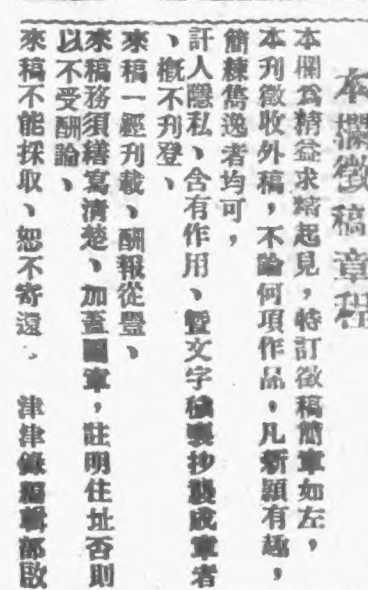 本欄徵稿章程
本欄爲精益求精起見，特訂徵稿簡章如左，
本刊徵收外稿，不論何項作品，凡新穎有趣，
簡練雋逸者均可，
訐人隱私、含有作用、暨文字穢褻抄襲成章者
、槪不刋登、
來稿一經刋載、酬報從豐、
來稿務須繕寫淸楚、加蓋圖章，註明住址否則
以不受酬論、
來稿不能採取、恕不寄還、 津津錄編輯部啟